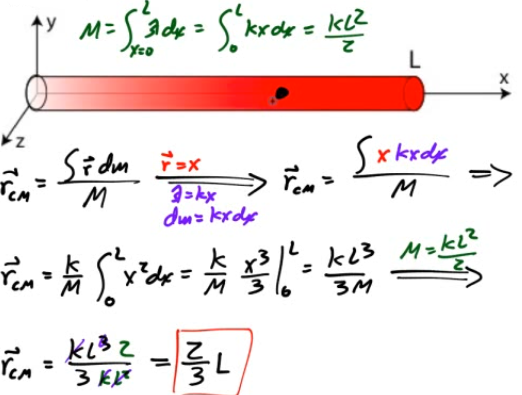 y
M = ∫_{x=0}^{L} λdx = ∫_{0}^{L} kxdx = kL²/2
L
x
z
r⃗_CM = ∫r⃗ dm / M r⃗=x λ=kx dm=kxdx ⟹ r⃗_CM = ∫ x kxdx / M ⟹
r⃗_CM = k/M ∫_{0}^{L} x²dx = k/M x³/3 |_{0}^{L} = kL³/3M M=kL²/2 ⟹
r⃗_CM = kL³2 / 3kL² = 2/3 L